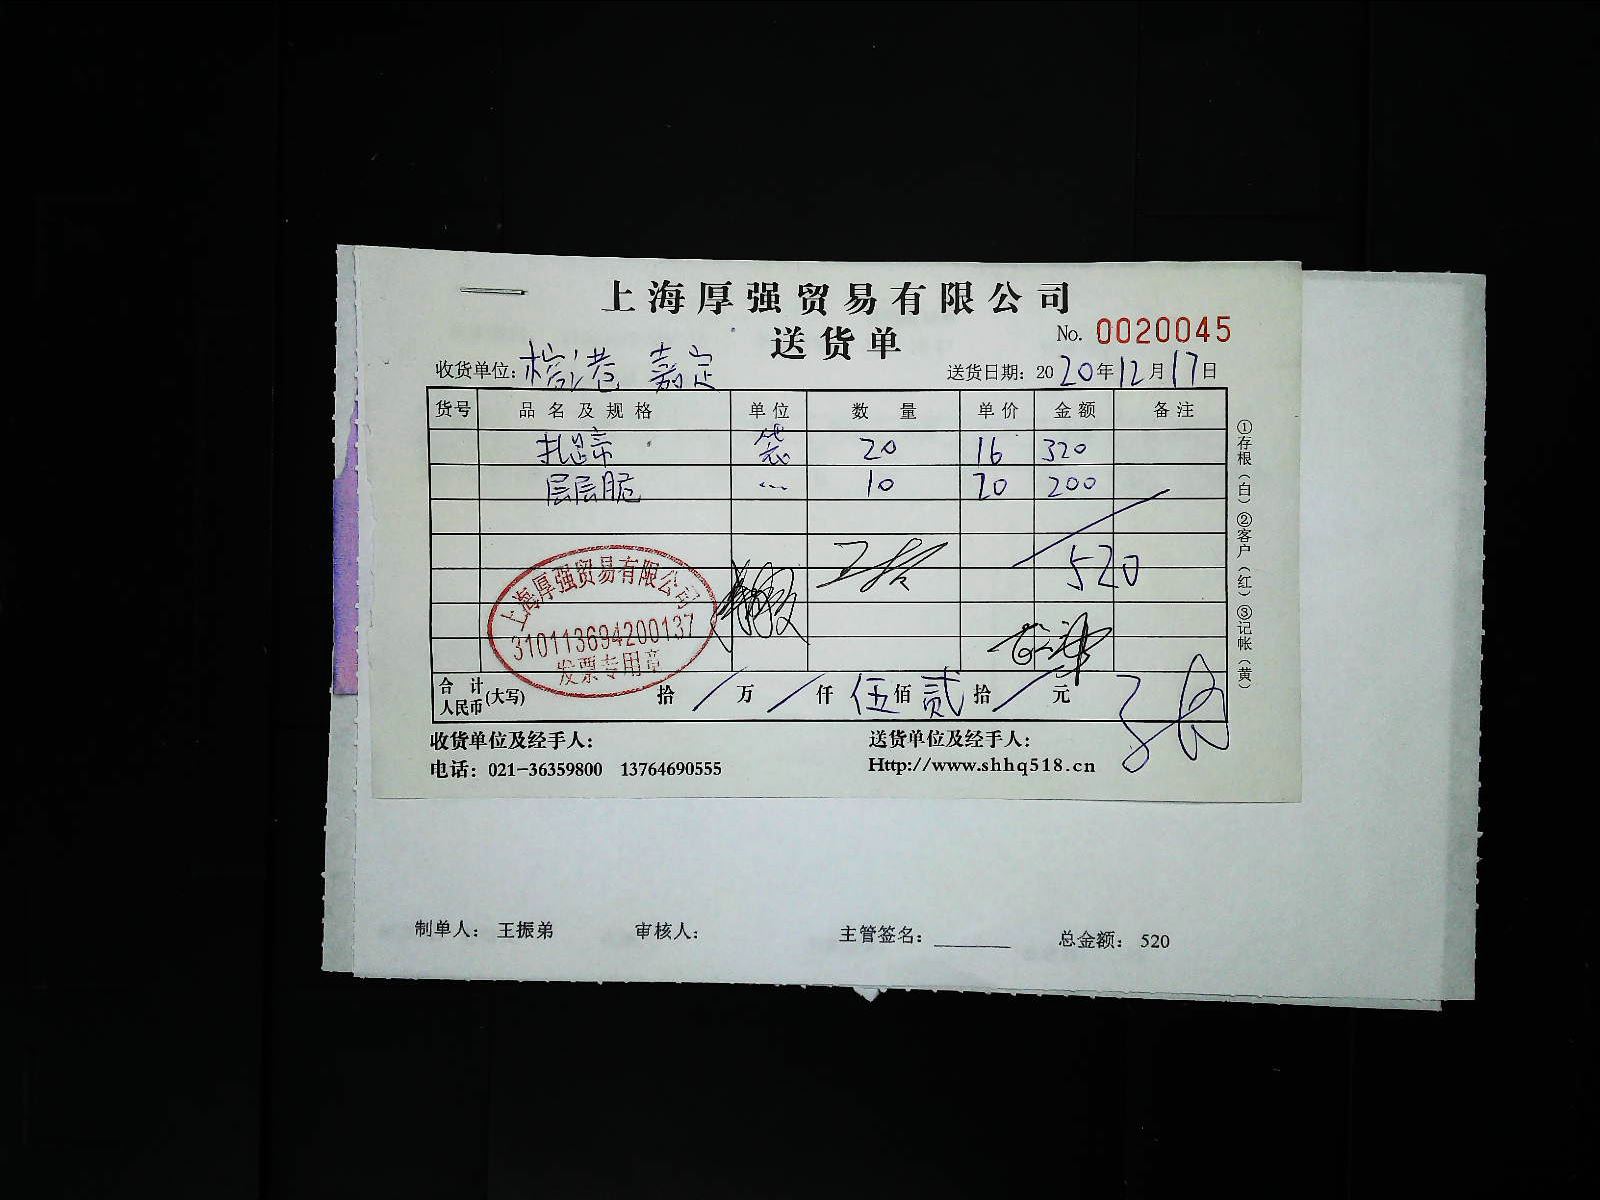 上海厚强贸易有限公司
送货单
No. 0020045
收货单位: 港 嘉定
送货日期: 2020年12月17日
货号 品名及规格 单位 数量 单价 金额 备注
扎蹄 袋 20 16 320
层层脆 〃 10 20 200
520
上海厚强贸易有限公司
310113694200137
发票专用章
合计人民币(大写) 拾 / 万 / 仟 伍 佰 贰 拾 / 元
收货单位及经手人:
送货单位及经手人:
电话: 021-36359800 13764690555
Http://www.shhq518.cn
①存根(白)②客户(红)③记帐(黄)
制单人: 王振弟 审核人: 主管签名: ________ 总金额: 520